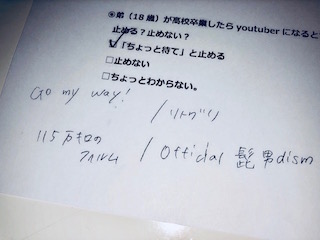 ⑨弟（18歳）が高校卒業したらyoutuberになると
止める？止めない？
☑「ちょっと待て」と止める
□止めない
□ちょっとわからない。
Go my way! / リトグリ
115万キロの
フィルム / Official 髭男dism